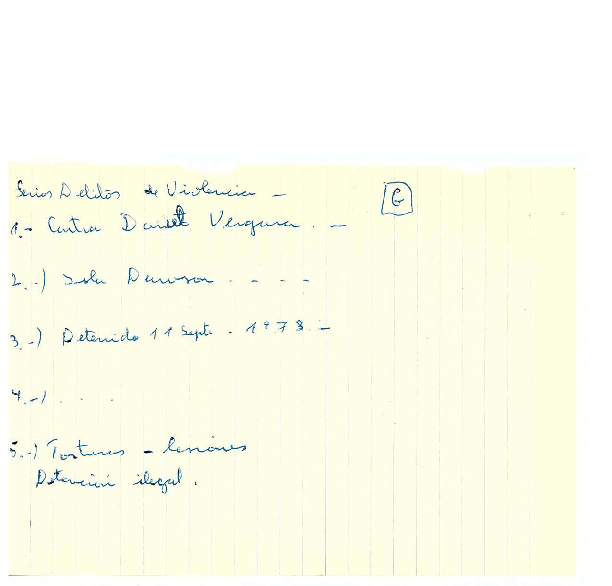 Serios Delitos de Violencia - G
1.- Contra Daniel Vergara . -
2.-) Isla Dawson . - - -
3.-) Detenido 11 Sept. - 1973. -
4.-) . . .
5.-) Torturas - lesiones
Detención ilegal .